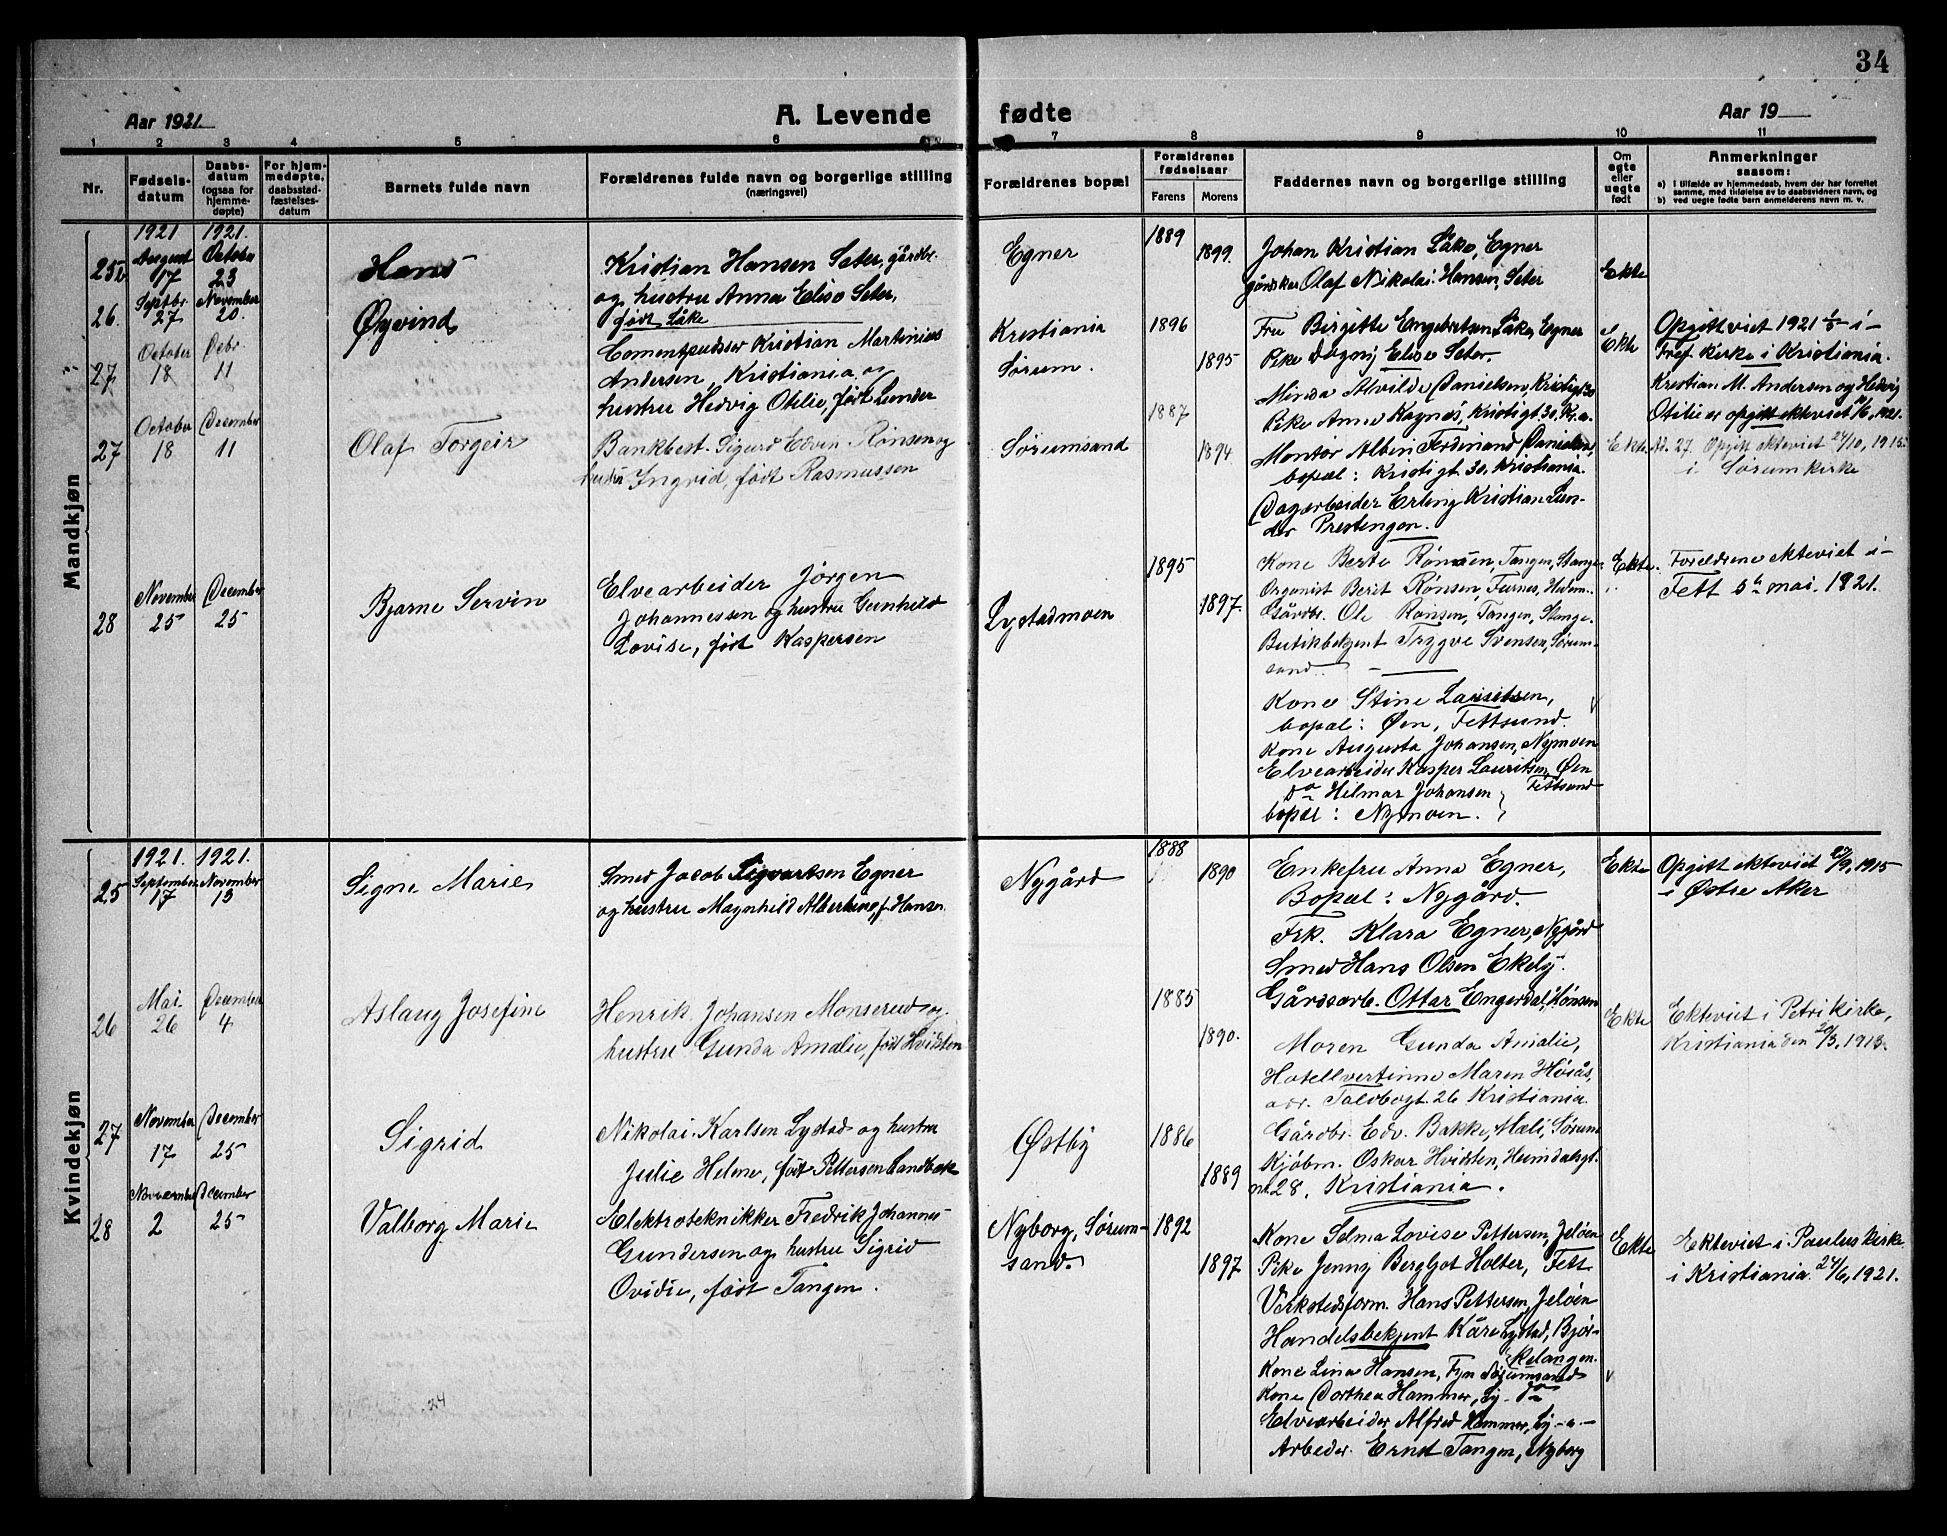 34
Aar 1921
A. Levende fødte
Aar 19
1 2 3 4 5 6 7 8 9 10 11
Nr.
Fødsels-
datum
Daabs-
datum
(ogsaa for
hjemme-
døpte)
For hjem-
medøpte,
daabsstad-
fæstelses-
datum
Barnets fulde navn
Forældrenes fulde navn og borgerlige stilling
(næringsvei)
Forældrenes bopæl
Forældrenes
fødselsaar
Farens Morens
Faddernes navn og borgerlige stilling
Om
egte
eller
uegte
født
Anmerkninger
saasom:
a) i tilfælde av hjemmedaab, hvem der har forrettet
samme, med tilføielse av to daabsvidners navn, og
b) ved uegte fødte barn anmelderens navn m. v.
Mandkjøn
1921 1921.
25b
August
17
Octobr
23
Hans
Kristian Hansen Seter, gårdbr.
og hustru Anna Elise Seter,
født Låke
Egner
1889
1899.
Johan Kristian Låke, Egner
Olaf Nikolai Hansen Seter
Fru Birgitte Engebretsen Låke, Egner
Pike Dagny Elise Seter.
Ekte
26.
Septbr
27
November
20.
Øyvind
Cementpudser Kristian Martinius
Andersen, Kristiania og
hustru Hedvig Otilie, født Lunder
Kristiania
Sørum.
1896
1895
Minda Alvilde Danielsen, Kristigt. 30
Pike Anne Ragnes, Kristigt. 30, Kr.a.
Montør Albin Ferdinand Danielsen,
bopæl: Kristigt 30, Kristiania.
Dagarbeider Erling Kristian Lun-
der Prestengen.
Ekte
Opgitt viet 1921 i
Kirke i Kristiania.
Kristian M. Andersen og Hedvig
Otilie er opgitt ekteviet 1921.
27
October
18
11
27
October
18
December
11
Olaf Torgeir
Bankbest. Sigurd Edvin Rønsen og
hustru Ingrid, født Rasmussen
Sørumsand
1887
1894
Kone Berte Rønsen, Tangen, Stange
Organist Berit Rønsen, Furnes, Hedm.
Gårdbr. Ole Rønsen, Tangen, Stange.
Butikbetjent Trygve Svensen, Sørum-
sand.
Ekte
Ad. 27. Opgitt ekteviet 24/10, 1915
i Sørum kirke
28
November
25
December
25
Bjarne Servin
Elvearbeider Jørgen
Johannessen og hustru Gunhild
Lovise, født Kaspersen
Lystadmoen
1895
1897.
Kone Stine Lauritsen,
bopæl: Øen, Fettsund.
Kone Augusta Johansen, Nymoen
Elvearbeider Kasper Lauritsen, Øen
Fettsund
do Hilmar Johansen
bopæl: Nymoen.
Ekte.
Foreldrene ekteviet i
Fett 5te mai. 1921.
Kvindekjøn
1921. 1921.
25
September
17
November
13
Signe Marie
Smed Jacob Sigvartsen Egner
og hustru Magnhild Albertine, f. Hansen
Nygård
1888
1890
Enkefru Anna Egner,
Bopæl: Nygård.
Frk. Klara Egner, Nygård
Smed Hans Olsen Ekeby.
Gårdsarb. Ottar Engerdal, Rønsen
Ekte
Opgitt ekteviet /9, 1915
i Østre Aker
26
Mai
26
December
4
Aslaug Josefine
Henrik Johansen Monserud og
hustru Gunda Amalie, født Hvidsten
1885
1890.
Moren Gunda Amalie,
Hotellvertinne Maren Høiås,
adr. Toldbogt. 26 Kristiania
Gårdbr. Edv. Bakke, Mæli, Sørum
Kjøbm. Oskar Hvidsten, Heimdalsgt.
nr. 28, Kristiania.
Ekte
Ekteviet i Petri kirke,
Kristiania den 20/3, 1913.
27
November
17
December
25
Sigrid
Nikolai Karlsen Lystad og hustru
Julie Helene, født Pettersen Sandbæk
Østby
1886
1889
Kone Selma Lovise Pettersen, Jeløen
Pike Jenny Bergljot Holter, Fett
Verkstedsform. Hans Pettersen, Jeløen
Handelsbetjent Kåre Lystad, Bjør-
kelangen.
Ekte
28
November
2
December
25
Valborg Marie
Elektrotekniker Fredrik Johannes
Gundersen og hustru Sigrid
Ovidie, født Tangen.
Nyborg, Sørum-
sand.
1892
1897
Kone Lina Hansen, Sørumsand
Kone Dorthea Hammer,
Elvearbeider Alfred Hammer,
Arbeder. Ernst Tangen, Nyborg
Ekteviet i Paulus kirke
i Kristiania 24/6, 1921.